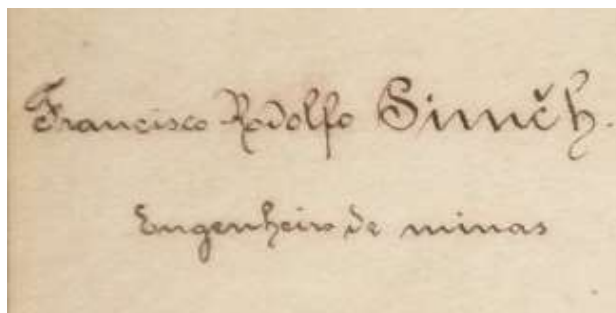 Francisco Rodolfo Simčh.
Engenheiro de minas